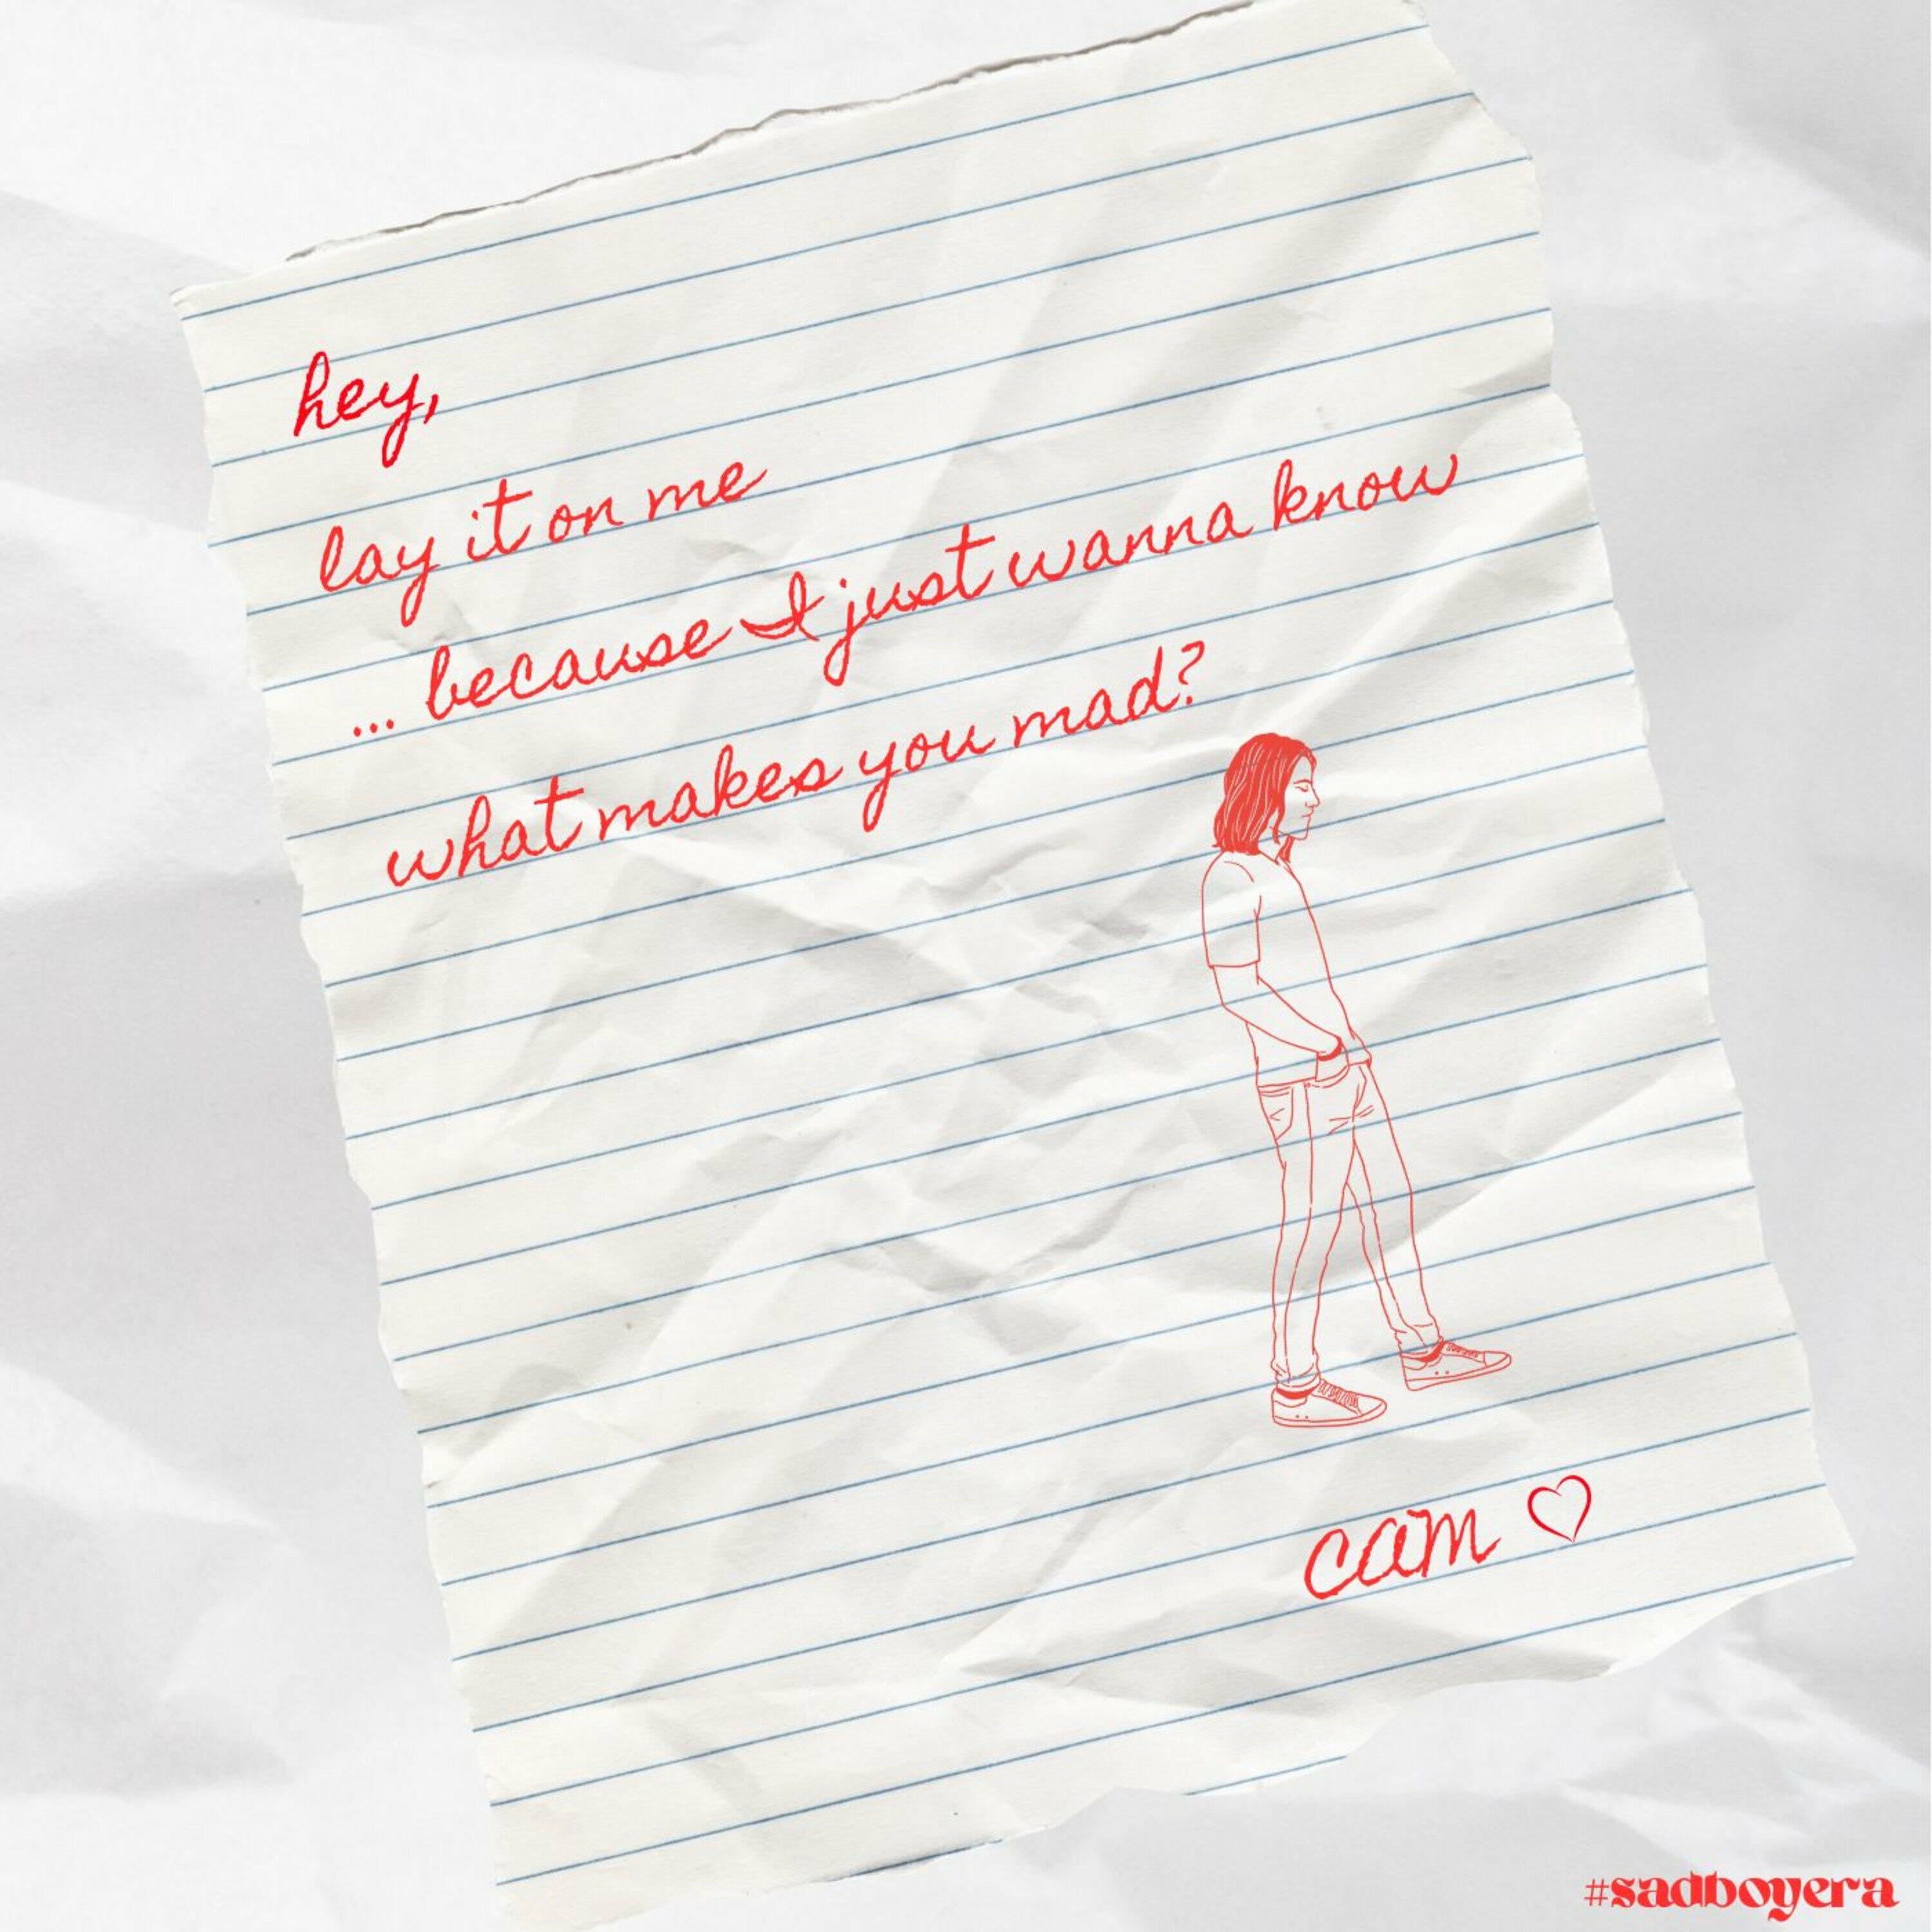 hey,
lay it on me
... because I just wanna know
what makes you mad?
cam ♡
#sadboyera